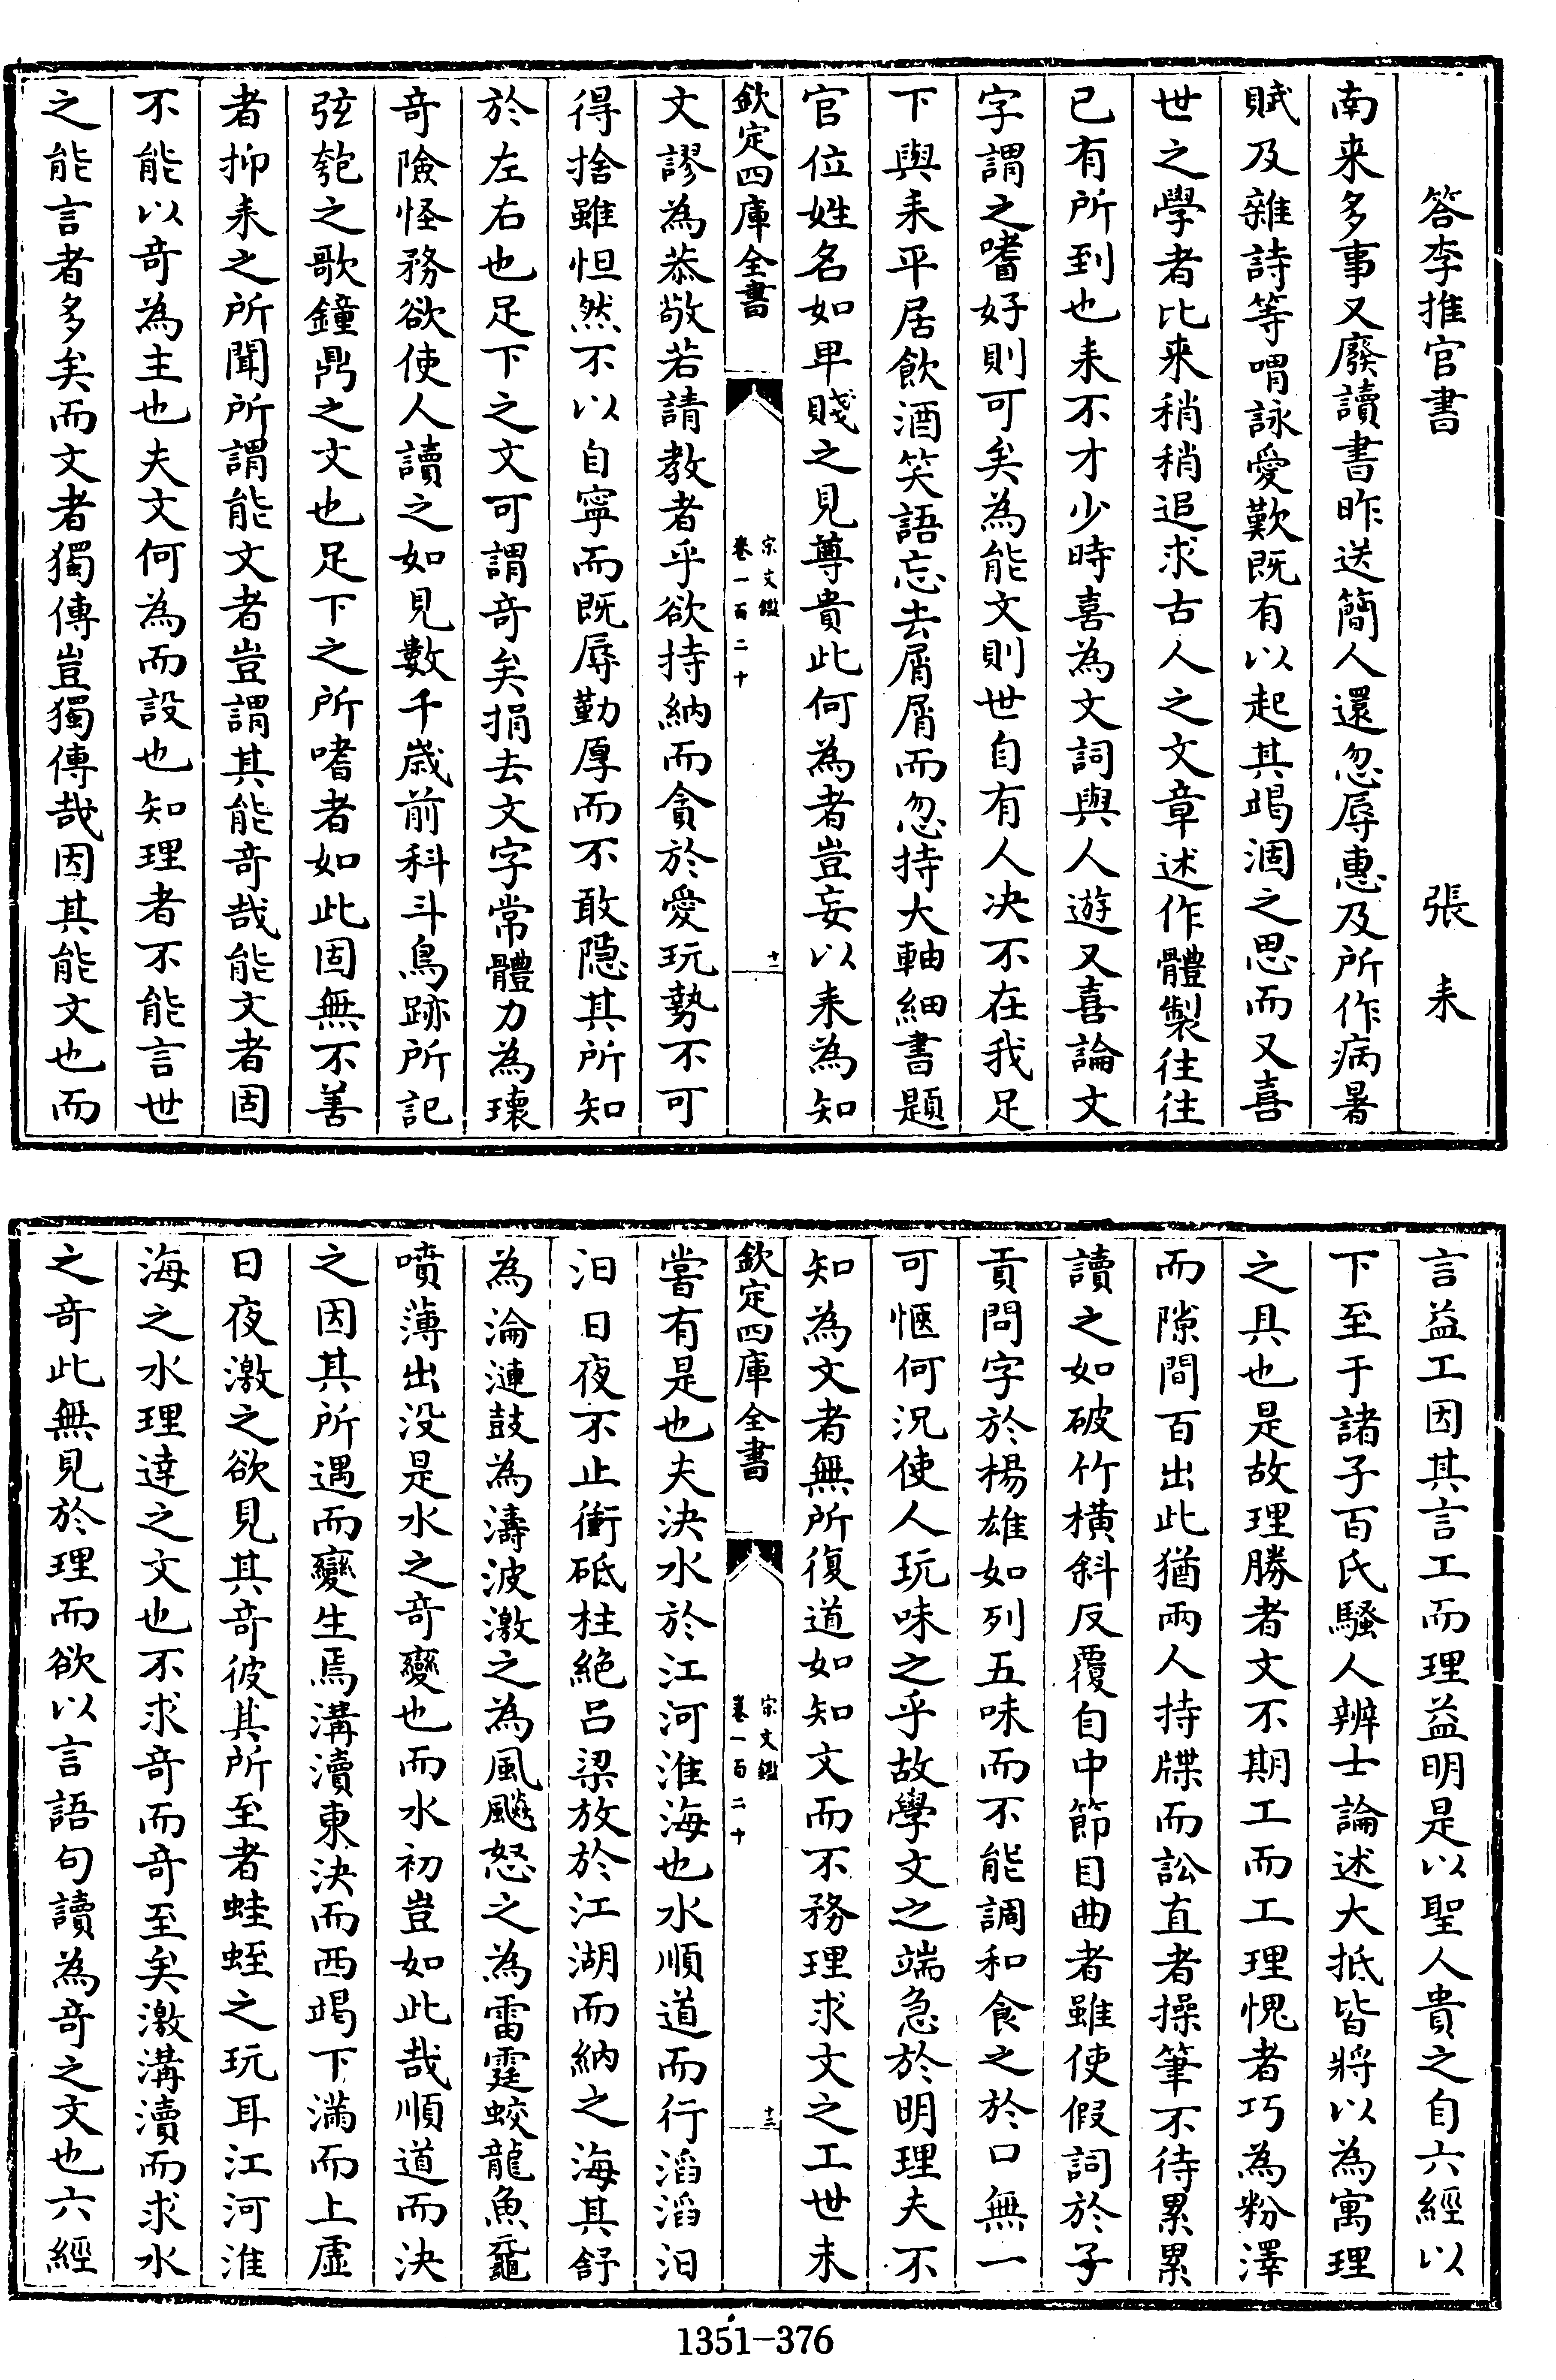 答李推官書 張耒
南来多事又廢讀書昨送簡人還忽辱惠及所作病暑
賦及雜詩等喟詠愛歎既有以起其竭涸之思而又喜
世之學者比来稍稍追求古人之文章述作體製往往
已有所到也耒不才少時喜為文詞與人遊又喜論文
字謂之嗜好則可矣為能文則世自有人决不在我足
下與耒平居飲酒笑語忘去屑屑而忽持大軸細書題
官位姓名如卑賤之見尊貴此何為者豈妄以耒為知
欽定四庫全書
宋文鑑
卷一百二十
十二
文謬為恭敬若請教者乎欲持納而貪於愛玩勢不可
得捨雖怛然不以自寧而既辱勤厚而不敢隠其所知
於左右也足下之文可謂奇矣捐去文字常體力為瓌
奇險怪務欲使人讀之如見數千歲前科斗鳥跡所記
弦匏之歌鐘鼎之文也足下之所嗜者如此固無不善
者抑耒之所聞所謂能文者豈謂其能奇哉能文者固
不能以奇為主也夫文何為而設也知理者不能言世
之能言者多矣而文者獨傳豈獨傳哉因其能文也而
言益工因其言工而理益明是以聖人貴之自六經以
下至于諸子百氏騷人辨士論述大抵皆將以為寓理
之具也是故理勝者文不期工而工理愧者巧為粉澤
而隙間百出此猶兩人持牒而訟直者操筆不待累累
讀之如破竹橫斜反覆自中節目曲者雖使假詞於子
貢問字於楊雄如列五味而不能調和食之於口無一
可愜何況使人玩味之乎故學文之端急於明理夫不
知為文者無所復道如知文而不務理求文之工世未
欽定四庫全書
宋文鑑
卷一百二十
十三
嘗有是也夫決水於江河淮海也水順道而行滔滔汩
汩日夜不止衝砥柱絶呂梁放於江湖而納之海其舒
為淪漣鼓為濤波激之為風飈怒之為雷霆蛟龍魚黿
噴薄出没是水之奇變也而水初豈如此哉順道而決
之因其所遇而變生焉溝瀆東決而西竭下滿而上虛
日夜激之欲見其奇彼其所至者蛙蛭之玩耳江河淮
海之水理達之文也不求奇而奇至矣激溝瀆而求水
之奇此無見於理而欲以言語句讀為奇之文也六經
1351-376